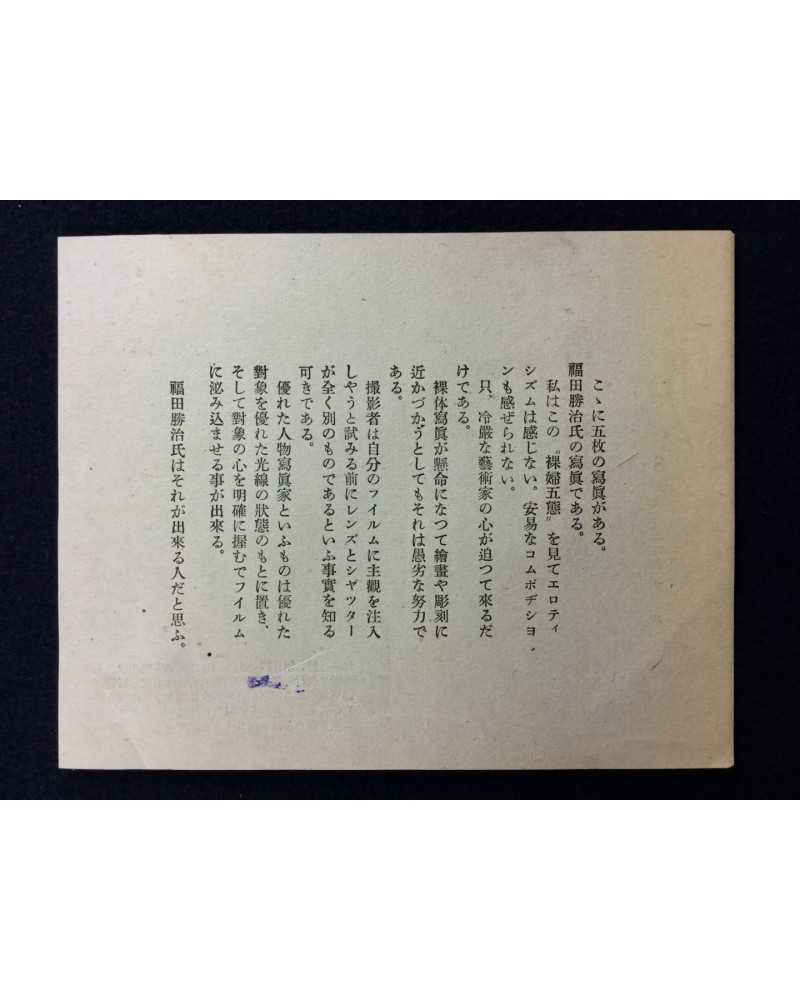 こゝに五枚の寫眞がある。
福田勝治氏の寫眞である。
私はこの〝裸婦五態〟を見てエロティ
シズムは感じない。安易なコムポヂシヨ
ンも感ぜられない。
只、冷嚴な藝術家の心が迫つて來るだ
けである。
裸体寫眞が懸命になつて繪畫や彫刻に
近かづかうとしてもそれは愚劣な努力で
ある。
撮影者は自分のフイルムに主觀を注入
しやうと試みる前にレンズとシヤツター
が全く別のものであるといふ事實を知る
可きである。
優れた人物寫眞家といふものは優れた
對象を優れた光線の狀態のもとに置き、
そして對象の心を明確に握むでフイルム
に泌み込ませる事が出來る。
福田勝治氏はそれが出來る人だと思ふ。